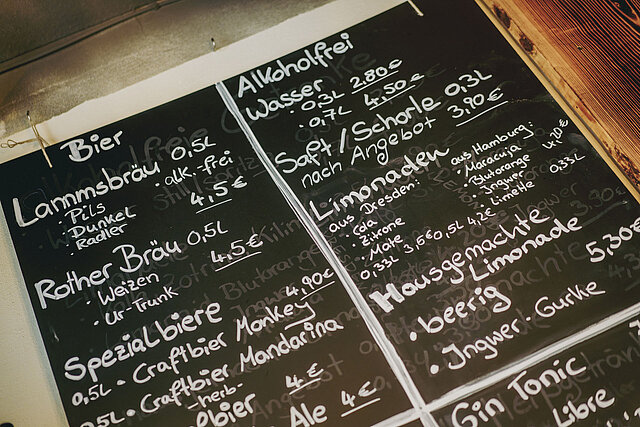 Bier
Lammsbräu 0,5L
· Pils · alk.-frei
· Dunkel 4,5€
· Radler
Rother Bräu 0,5L
· Weizen 4,5€
· Ur-Trunk
Spezialbiere 4,90€
0,5L · Craftbier Monkey
0,5L · Craftbier Mandarina
-herb-
bier 4€
Ale 4€
Alkoholfrei
Wasser
· 0,3L 2,80€
· 0,7L 4,50€
Saft/Schorle 0,3L
nach Angebot 3,90€
Limonaden
aus Dresden:
· Cola
· Zitrone
· Mate
0,33L 3,6€ 0,5L 4,2€
aus Hamburg: 4,20€
· Maracuja 0,33L
· Blutorange
· Ingwer
· Limette
Hausgemachte
Limonade 5,30€
· beerig
· Ingwer-Gurke
Gin Tonic
Libre